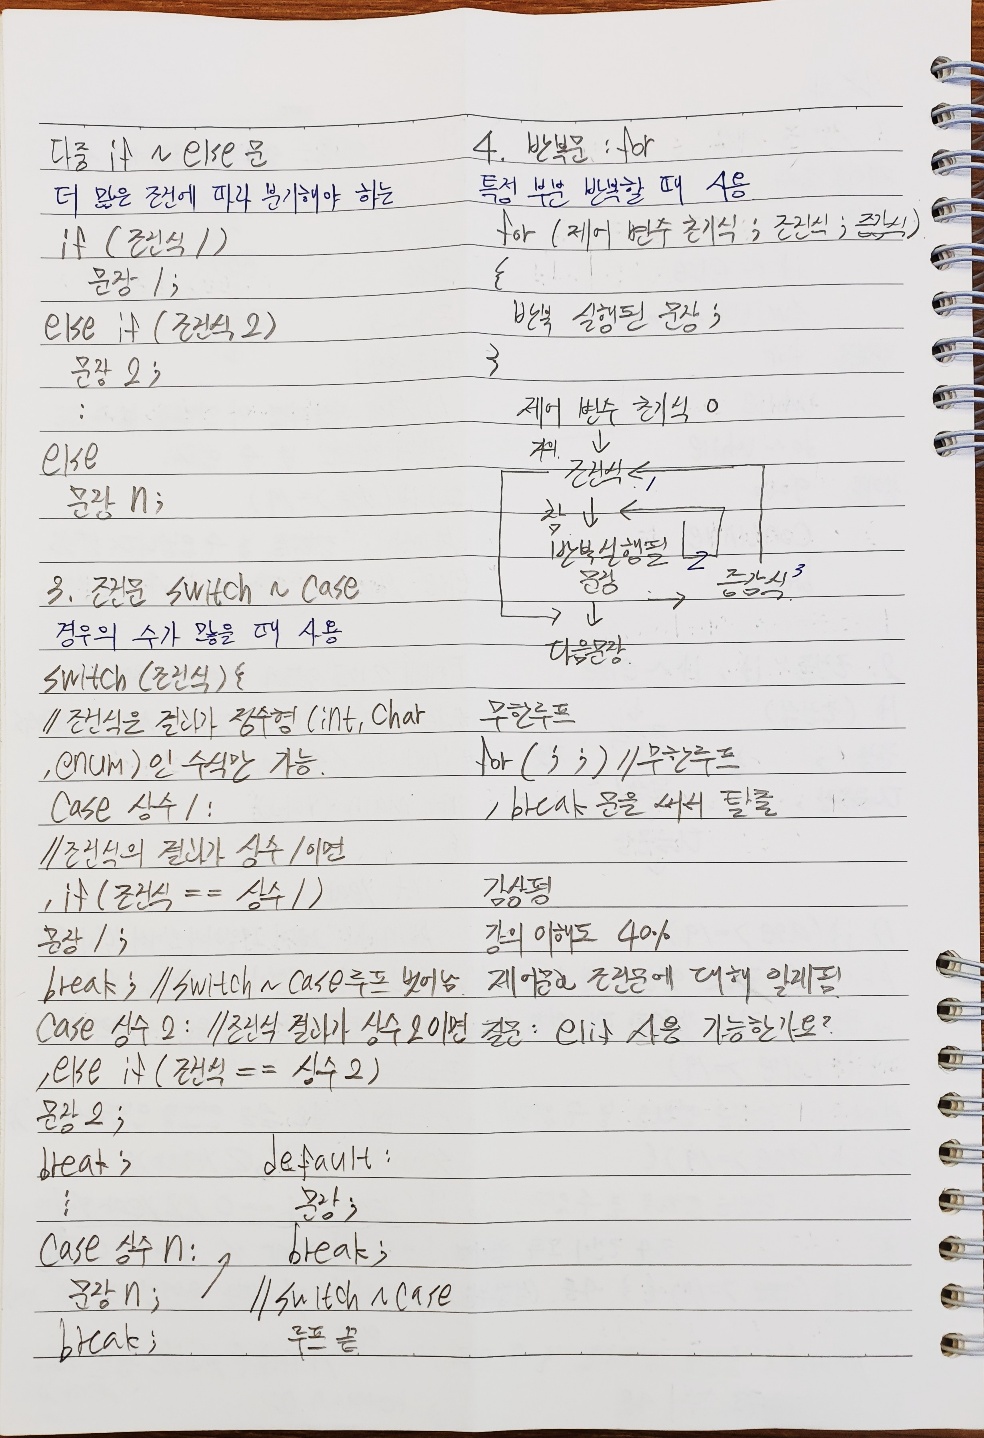 다중 if ~ else 문
더 많은 조건에 따라 분기해야 하는
if (조건식 1)
문장 1;
else if (조건식 2)
문장 2;
:
else
문장 n;
3. 조건문 switch ~ case
경우의 수가 많을 때 사용
switch (조건식) {
//조건식은 결과가 정수형 (int, char
, enum) 인 수식만 가능.
case 상수 1:
//조건식의 결과가 상수 1이면
, if (조건식 == 상수 1)
문장 1;
break; //switch ~ case 루프 벗어남
case 상수 2: //조건식 결과가 상수 2이면
, else if (조건식 == 상수 2)
문장 2;
break;
:
case 상수 n:
문장 n;
break;
default:
문장;
break;
//switch ~ case
루프 끝
4. 반복문 : for
특정 부분 반복할 때 사용
for (제어 변수 초기식 ; 조건식 ; 증감식)
{
반복 실행된 문장;
}
제어 변수 초기식 0
↓
조건식 1
참 ↓
반복실행될 2
문장 → 증감식 3
↓
다음문장.
무한루프
for ( ; ; ) //무한루프
, break 문을 써서 탈출
감상평
강의 이해도 40%
조건문에 대해
질문: elif 사용 가능한가요?